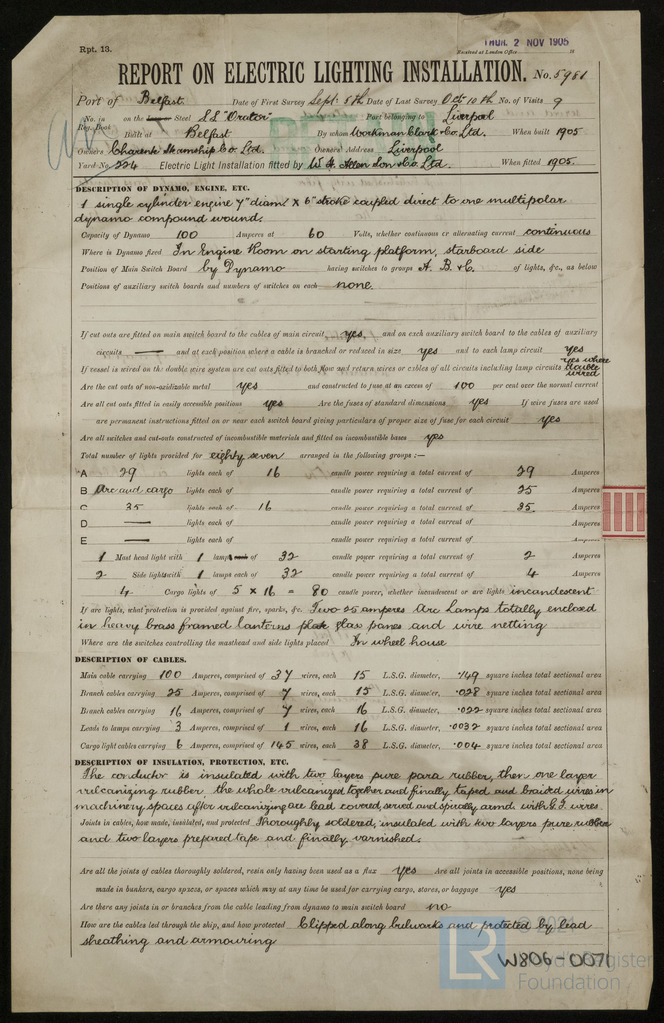 Rpt. 13.
THUR. 2 NOV 1905
Received at London Office
REPORT ON ELECTRIC LIGHTING INSTALLATION. No. 5981
Port of Belfast Date of First Survey Sept 8th Date of Last Survey Oct 10th No. of Visits 9
No. in Reg. Book on the Steel SS "Orator" Port belonging to Liverpool
Built at Belfast By whom Workman Clark & Co. Ltd. When built 1905
Owners Charente Steamship Co. Ltd. Owners' Address Liverpool
Yard No. 224 Electric Light Installation fitted by W. H. Allen Son & Co. Ltd. When fitted 1905.
DESCRIPTION OF DYNAMO, ENGINE, ETC.
1 single cylinder engine 7" diam. x 6" stroke coupled direct to one multipolar
dynamo compound wound.
Capacity of Dynamo 100 Amperes at 60 Volts, whether continuous or alternating current continuous
Where is Dynamo fixed In Engine Room on starting platform, starboard side
Position of Main Switch Board by Dynamo having switches to groups A. B. & C. of lights, &c., as below
Positions of auxiliary switch boards and numbers of switches on each none.
If cut outs are fitted on main switch board to the cables of main circuit yes, and on each auxiliary switch board to the cables of auxiliary
circuits — and at each position where a cable is branched or reduced in size yes and to each lamp circuit yes
If vessel is wired on the double wire system are cut outs fitted to both flow and return wires or cables of all circuits including lamp circuits yes where double wired
Are the cut outs of non-oxidizable metal yes and constructed to fuse at an excess of 100 per cent over the normal current
Are all cut outs fitted in easily accessible positions yes Are the fuses of standard dimensions yes If wire fuses are used
are permanent instructions fitted on or near each switch board giving particulars of proper size of fuse for each circuit yes
Are all switches and cut-outs constructed of incombustible materials and fitted on incombustible bases yes
Total number of lights provided for eighty seven arranged in the following groups :—
A 29 lights each of 16 candle power requiring a total current of 29 Amperes
B Arc and cargo lights each of candle power requiring a total current of 25 Amperes
C 35 lights each of 16 candle power requiring a total current of 35 Amperes
D — lights each of candle power requiring a total current of — Amperes
E — lights each of candle power requiring a total current of — Amperes
1 Mast head light with 1 lamps each of 32 candle power requiring a total current of 2 Amperes
2 Side lights with 1 lamps each of 32 candle power requiring a total current of 4 Amperes
4 Cargo lights of 5 x 16 = 80 candle power, whether incandescent or arc lights incandescent
If arc lights, what protection is provided against fire, sparks, &c. Two 25 amperes Arc Lamps totally enclosed
in heavy brass framed lanterns plate glass panes and wire netting
Where are the switches controlling the masthead and side lights placed In wheel house
DESCRIPTION OF CABLES.
Main cable carrying 100 Amperes, comprised of 37 wires, each 15 L.S.G. diameter, .149 square inches total sectional area
Branch cables carrying 25 Amperes, comprised of 7 wires, each 15 L.S.G. diameter, .028 square inches total sectional area
Branch cables carrying 16 Amperes, comprised of 7 wires, each 16 L.S.G. diameter, .022 square inches total sectional area
Leads to lamps carrying 3 Amperes, comprised of 1 wires, each 16 L.S.G. diameter, .0032 square inches total sectional area
Cargo light cables carrying 6 Amperes, comprised of 145 wires, each 38 L.S.G. diameter, .004 square inches total sectional area
DESCRIPTION OF INSULATION, PROTECTION, ETC.
The conductor is insulated with two layers pure para rubber, then one layer
vulcanizing rubber, the whole vulcanized together and finally taped and braided wires in
machinery spaces after vulcanizing are lead covered, served and spirally armd. with G.I. wires
Joints in cables, how made, insulated, and protected Thoroughly soldered, insulated with two layers pure rubber
and two layers prepared tape and finally varnished.
Are all the joints of cables thoroughly soldered, resin only having been used as a flux yes Are all joints in accessible positions, none being
made in bunkers, cargo spaces, or spaces which may at any time be used for carrying cargo, stores, or baggage yes
Are there any joints in or branches from the cable leading from dynamo to main switch board no
How are the cables led through the ship, and how protected Clipped along bulwarks and protected by lead
sheathing and armouring
© 2021
LR Lloyd's Register
Foundation
W806-0071